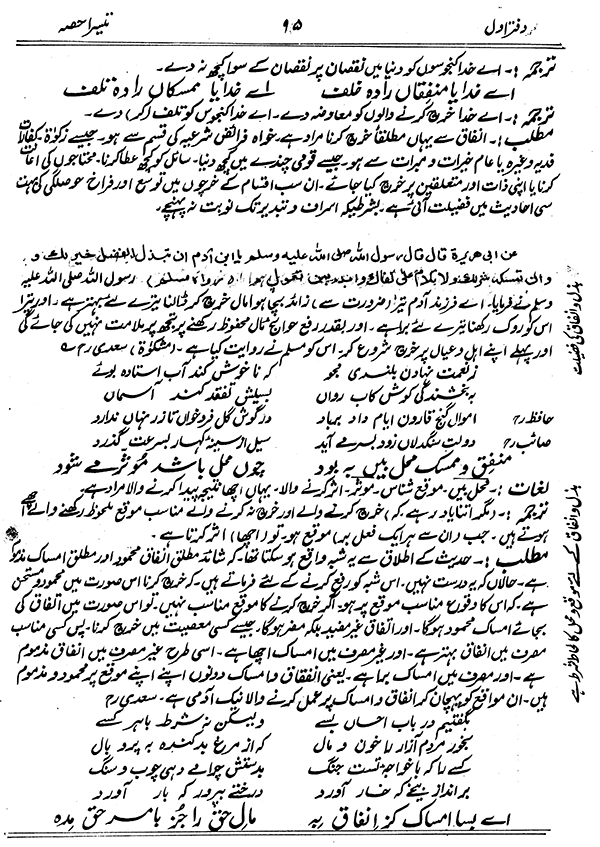 دفتر اول ۹۵ تیسرا حصہ
ترجمہ :- اے خدا کنجوسوں کو دنیا میں نقصان پر نقصان کے سوا کچھ نہ دے۔
اے خدایا منفقاں را دہ خلف اے خدایا ممسکاں را دہ تلف
ترجمہ :- اے خدا خرچ کرنے والوں کو معاوضہ دے۔ اے خدا کنجوس کو تلف (کر) دے۔
مطلب :- انفاق سے یہاں مطلقاً خرچ کرنا مراد ہے۔ خواہ فرائض شرعیہ کی قسم سے ہو۔ جیسے زکوٰۃ۔ کفارات
فدیہ وغیرہ یا عام خیرات و مبرات سے ہو۔ جیسے قومی چندے میں کچھ دینا۔ سائل کو کچھ عطا کرنا۔ محتاجوں کی اعانت
کرنا یا اپنی ذات اور متعلقین پر خرچ کیا جائے۔ ان سب اقسام کے خرچوں میں توسع اور فراخ حوصلگی کی بہت
سی احادیث میں فضیلت آئی ہے۔ بشرطیکہ اسراف و تبذیر تک نوبت نہ پہنچے۔
عن ابی هریرة قال قال رسول الله صلی الله علیه وسلم یا ابن آدم ان تبذل الفضل خیر لك و
ان تمسکه شر لك ولا تلام علی کفاف وابدء بمن تعول (رواه مسلم) رسول اللہ صلی اللہ علیہ
وسلم نے فرمایا۔ اے فرزند آدم تیرا (ضرورت سے) زائد بچا ہوا مال خرچ کر ڈالنا تیرے لئے بہتر ہے۔ اور تیرا
اس کو روک رکھنا تیرے لئے برا ہے۔ اور بقدر رفع حوائج مال محفوظ رکھنے پر تجھ پر ملامت نہیں کی جائے گی
اور پہلے اپنے اہل و عیال پر خرچ شروع کر۔ اس کو مسلم نے روایت کیا ہے۔ (مشکوٰۃ) سعدی رح
ز نعمت نہادن بلندی مجو کہ ناخوش کند آب استادہ بوئے
بہ بخشندگی کوش کاب رواں بسیلش تفقد کند آسماں
حافظ رح احوال گنج قارون ایام داد برباد در گوش گل فروخواں تا زر نہاں ندارد
صائب رح دولت سنگدلاں زود بسر مے آید سیل از سینہ کہسار بسرعت گذرد
منفق و ممسک محل بیں بہ بود چوں محل باشد مؤثر مے شود
لغات :- محل بیں۔ موقع شناس۔ موثر۔ اثر کرنے والا۔ یہاں اچھا نتیجہ پیدا کرنے والا مراد ہے۔
ترجمہ :- (مگر اتنا یاد رہے کہ) خرچ کرنے والے اور خرچ نہ کرنے والے مناسب موقع ملحوظ رکھنے والے اچھے
ہوتے ہیں۔ جب (ان سے ہر ایک فعل بر) موقع ہو۔ تو (اچھا) اثر کرتا ہے۔
مطلب :- حدیث کے اطلاق سے یہ شبہ واقع ہو سکتا تھا۔ کہ شائد مطلق انفاق محمود اور مطلق امساک مذموم
ہے۔ حالانکہ یہ درست نہیں۔ اس شبہ کو رفع کرنے کے لئے فرماتے ہیں۔ کہ خرچ کرنا اس صورت میں محمود و مستحسن
ہے۔ کہ اس کا وقوع مناسب موقع پر ہو۔ اگر خرچ کرنے کا موقع مناسب نہیں۔ تو اس صورت میں انفاق کی
بجائے امساک محمود ہوگا۔ اور انفاق غیر مفید بلکہ مضر ہوگا۔ جیسے کسی معصیت میں خرچ کرنا۔ پس کسی مناسب
مصرف میں انفاق بہتر ہے۔ اور غیر مصرف میں امساک اچھا ہے۔ اسی طرح غیر مصرف میں انفاق مذموم
ہے۔ اور مصرف میں امساک برا ہے۔ یعنی انفاق و امساک دونوں اپنے اپنے موقع پر محمود و مذموم
ہیں۔ ان مواقع کو پہچان کر انفاق و امساک پر عمل کرنے والا نیک آدمی ہے۔ سعدی رح
بگفتیم در باب احساں بسے ولیکن نہ شرط است با ہر کسے
بخور مردم آزار را خون و مال کہ از مرغ بد کندہ بہ پر و بال
کسے را کہ با خواجہ تست جنگ بدستش چرا مے دہی چوب و سنگ
بر انداز بیخے کہ خار آورد درختے بپرور کہ بار آورد
اے بسا امساک کز انفاق بہ مال حق را جز با مر حق مدہ
بذل و انفاق کی فضیلت
بذل و انفاق کے لئے موقع و محل کا لحاظ شرط ہے